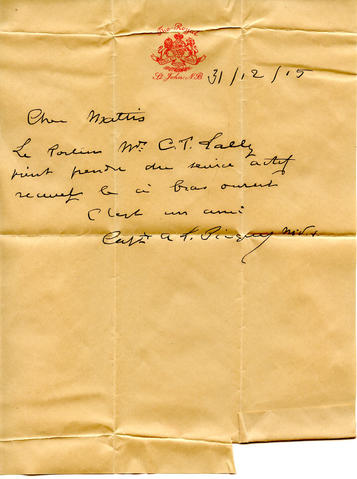 The Royal
St John, N.B.
31/12/15
Cher
Le Mr. C. T. Lally
vient prendre du service actif
recevez le à bras ouvert
C'est un ami
Capt A. L.